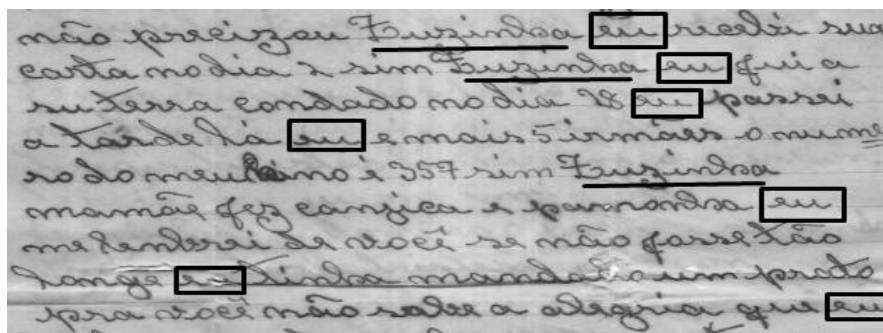 não precizou Zuzinha eu recebi sua
carta no dia 2 sim Zuzinha eu fui a
su terra condado no dia 28 eu passei
a tarde lá eu e mais 5 irmães o nume
ro do meu hino é 357 sim Zuzinha
mamãe fez canjica e pamonha eu
me lenbrei de você se não fosse tão
longe eu tinha mandado um prato
pra você não sabe a alegria que eu